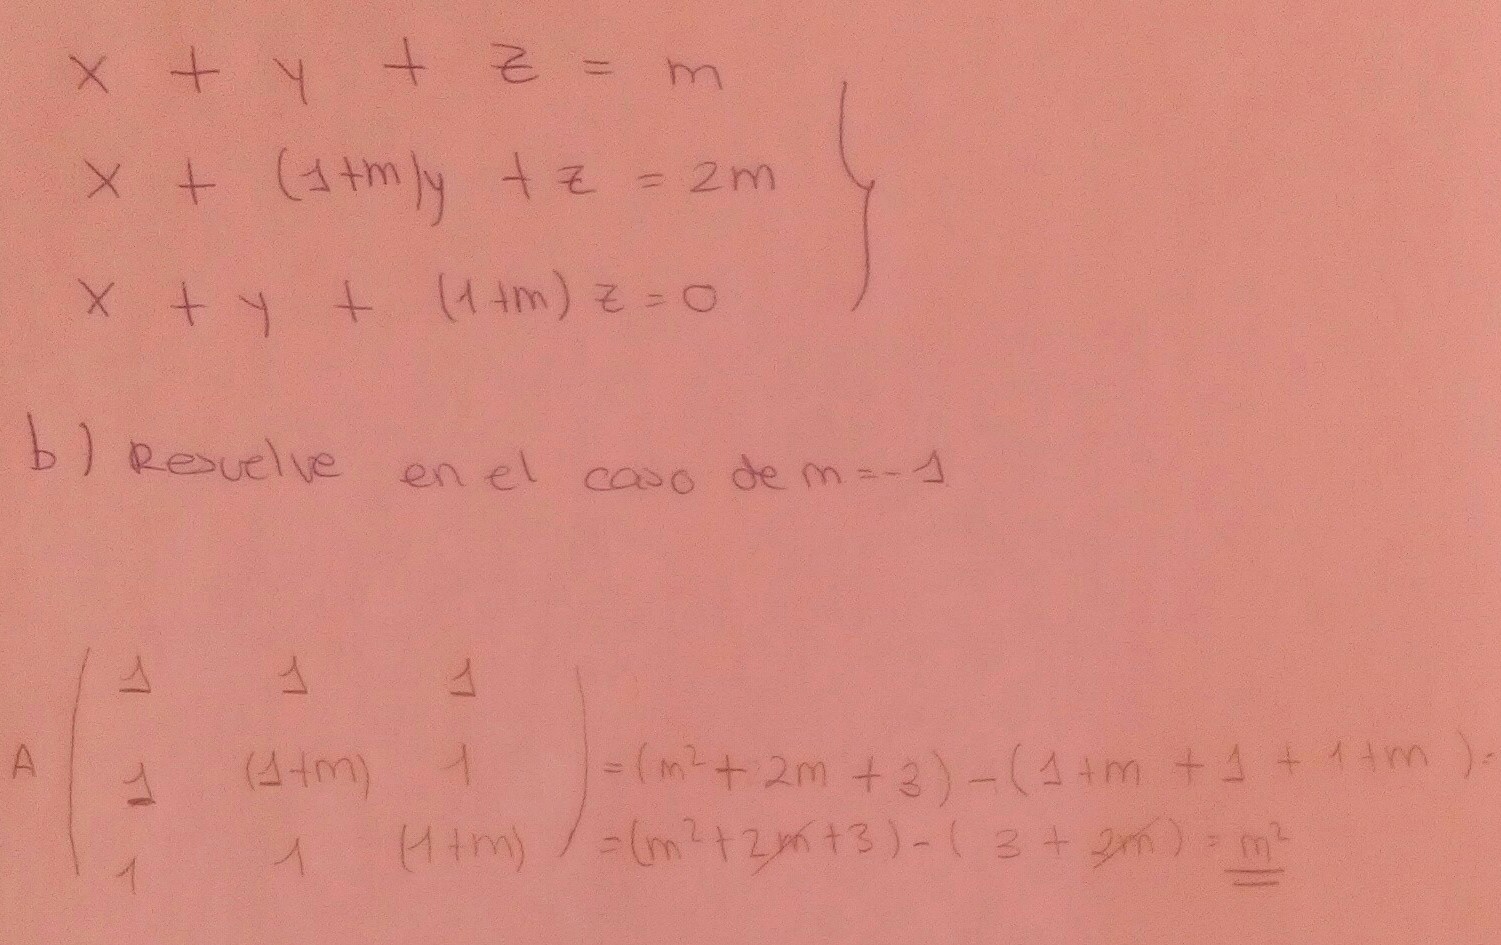 x + y + z = m
x + (1+m)y + z = 2m
x + y + (1+m) z = 0
b) Resuelve en el caso de m = -1
1 1 1
A 1 (1+m) 1 = (m² + 2m + 3) - (1+m + 1 + 1+m) =
1 1 (1+m) = (m² + 2m + 3) - ( 3 + 2m ) = m²